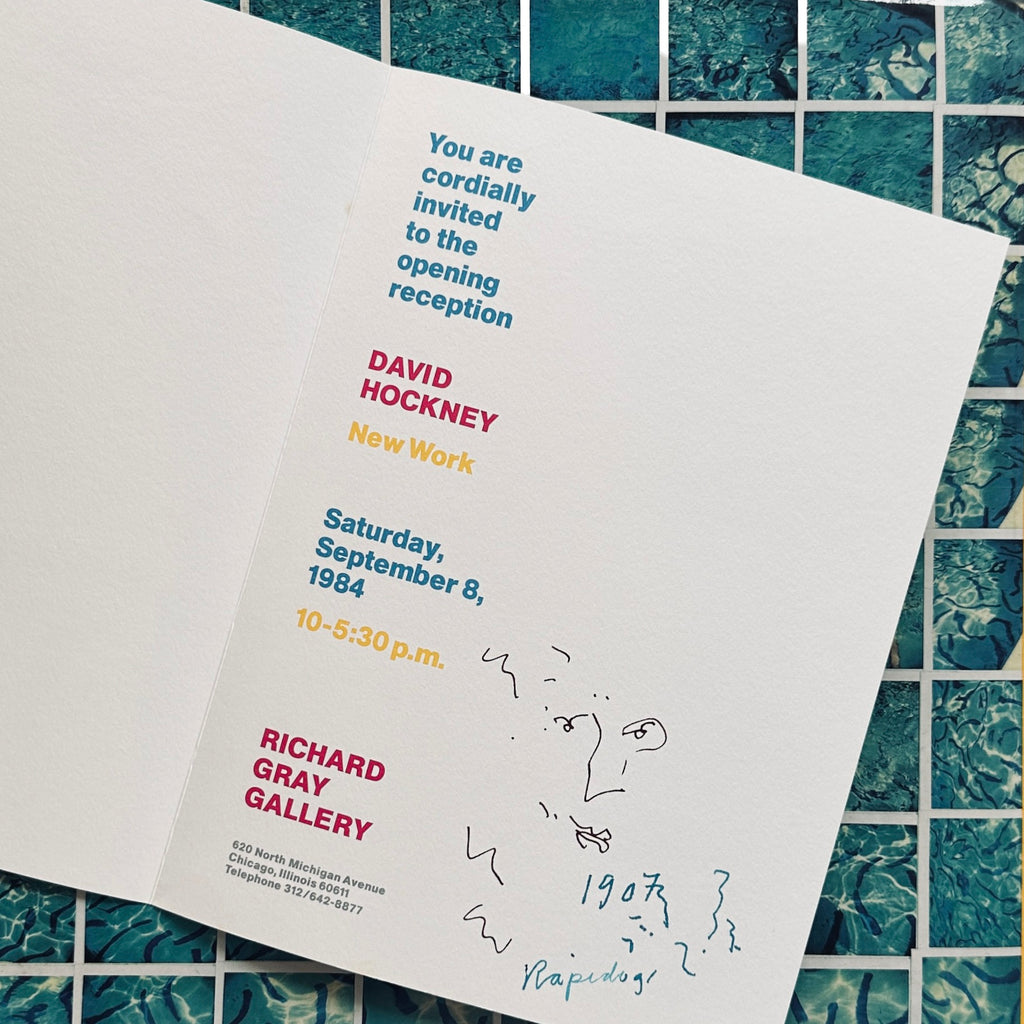 You are
cordially
invited
to the
opening
reception
DAVID
HOCKNEY
New Work
Saturday,
September 8,
1984
10-5:30 p.m.
RICHARD
GRAY
GALLERY
620 North Michigan Avenue
Chicago, Illinois 60611
Telephone 312/642-8877
1907